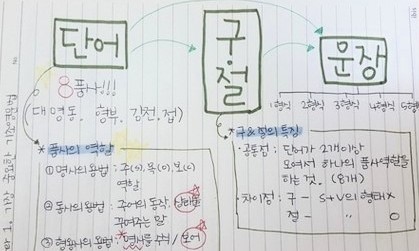 단어
구·절
문장
8품사!!!
대명동, 형부, 감전, 접)
1형식 2형식 3형식 4형식 5형식
*품사의 역할
① 명사의용법 : 주(s), 목(o), 보(c)
역할
② 동사의용법 : 주어의 동작, 상태를
꾸며주는 말
③ 형용사의용법 : *명사를 수식 / 보어
*구&절의 특징
·공통점 : 단어가 2개이상
모여서 하나의 품사역할을
하는 것. (8개)
·차이점 : 구 - S+V의 형태 X
절 - 〃 O